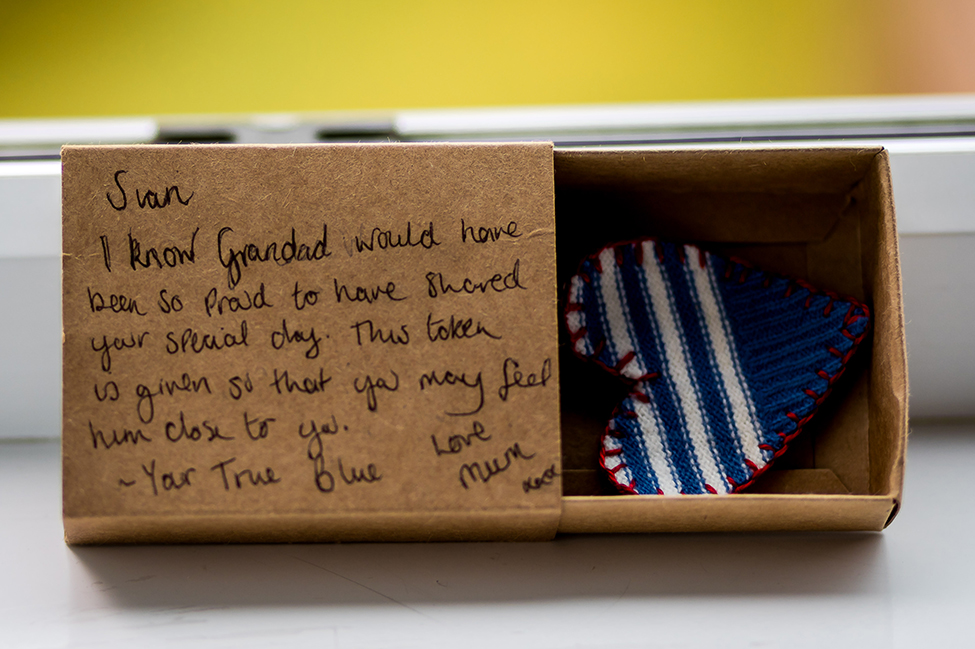 Sian
I know Grandad would have
been so proud to have shared
your special day. This token
is given so that you may feel
him close to you.
~ Your True Blue
Love
Mum
xxx